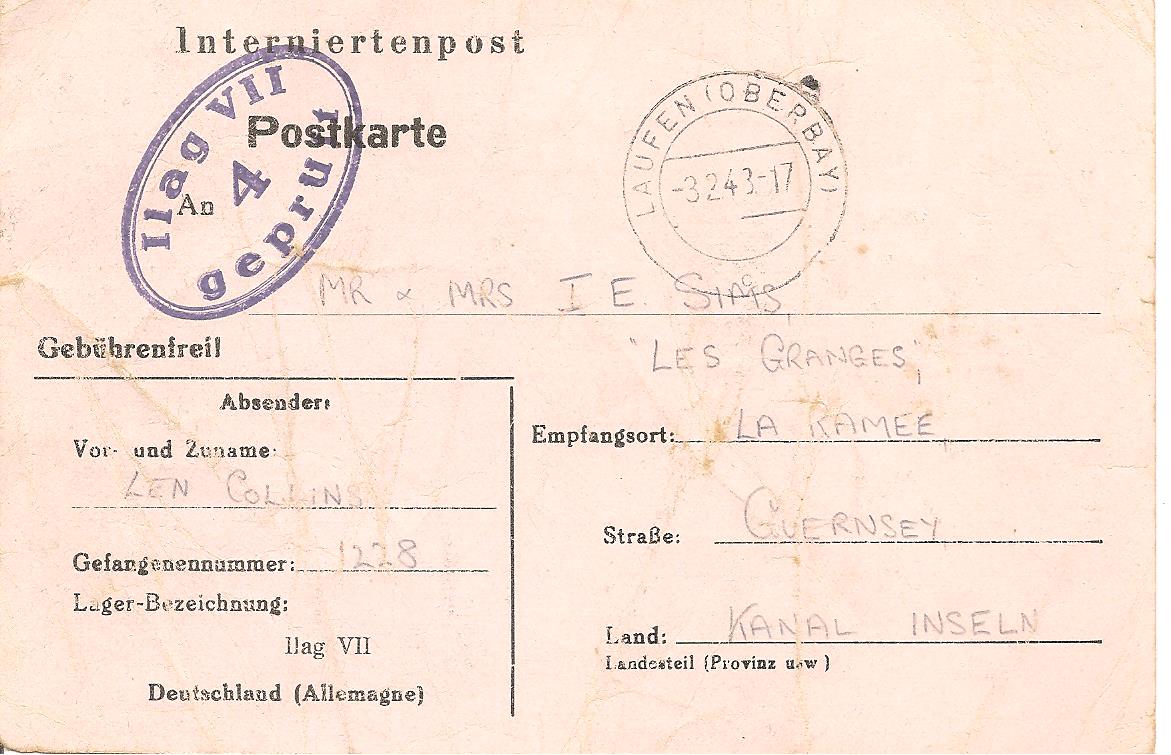 Interniertenpost
Ilag VII
4
geprüft
Postkarte
An
LAUFEN (OBERBAY)
-3.2.43.-17
c
MR & MRS I E. SIMS,
Gebührenfrei!
"LES GRANGES",
Absender:
Vor- und Zuname:
LEN COLLINS
Gefangenennummer: 1228
Lager-Bezeichnung:
Ilag VII
Deutschland (Allemagne)
Empfangsort: LA RAMEE
Straße: GUERNSEY
Land: KANAL INSELN
Landesteil (Provinz usw)